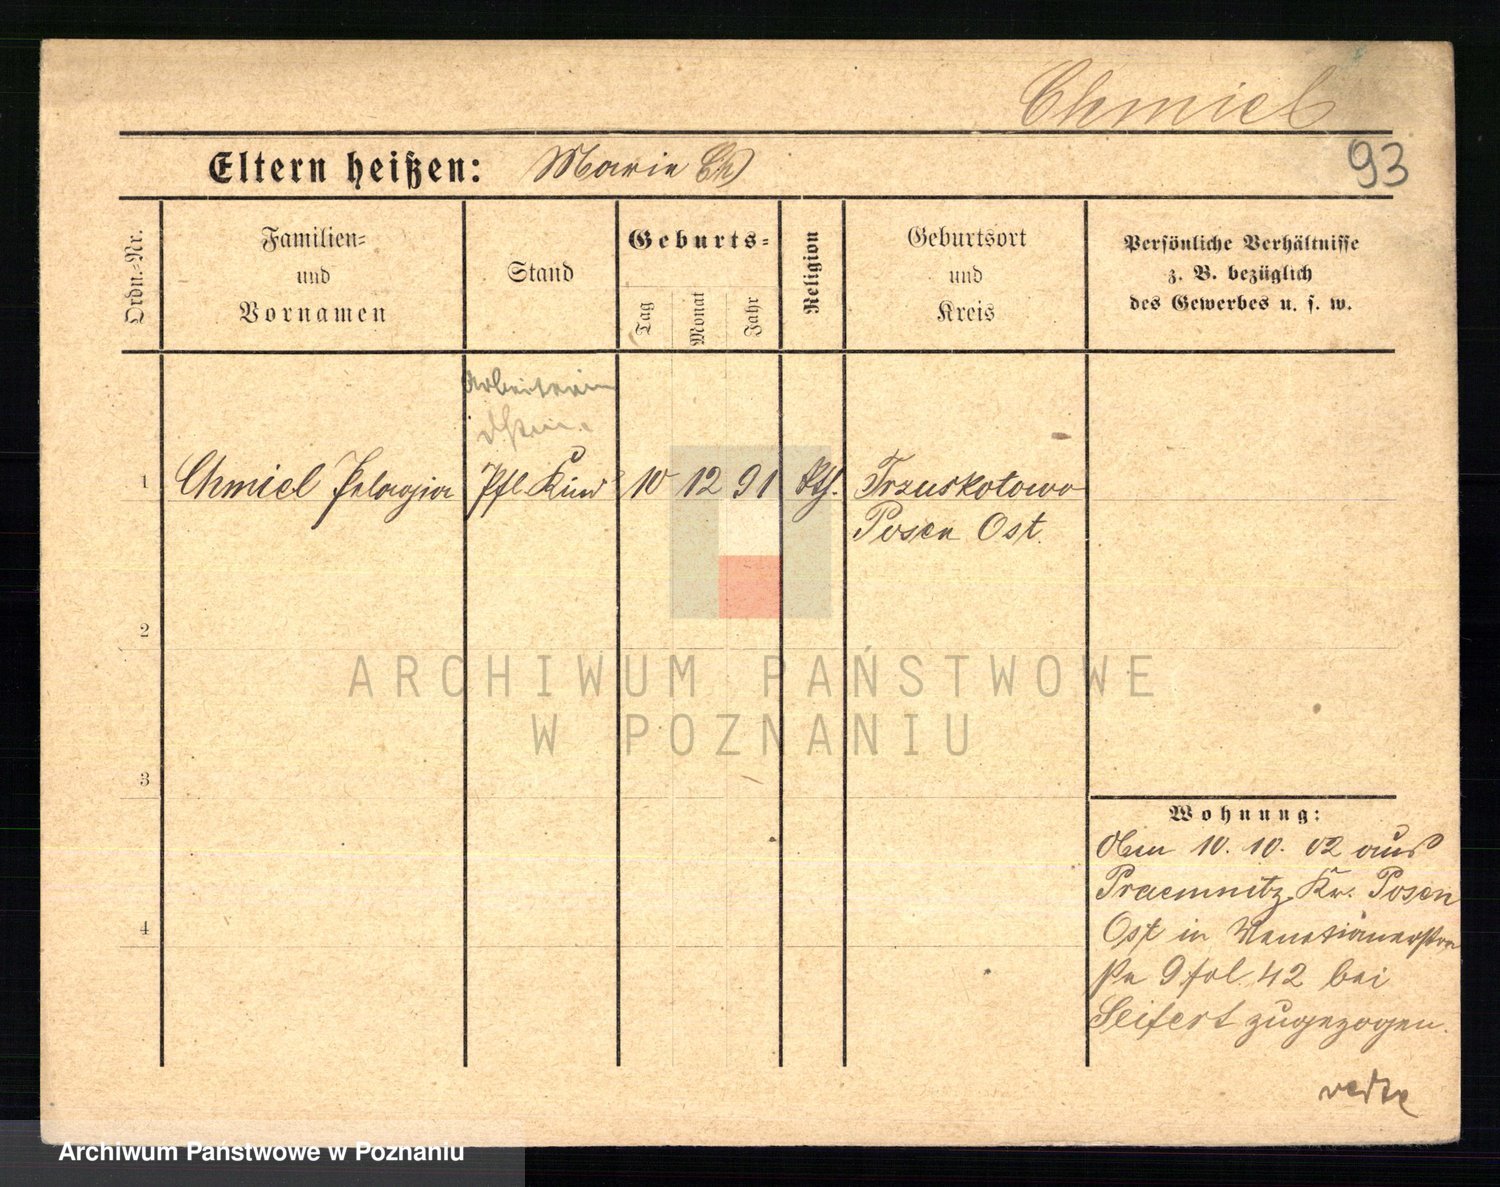 Chmiel
93
Eltern heißen: Marie Ch
Ordn.-Nr.
Familien-
und
Vornamen
Stand
Geburts-
Tag
Monat
Jahr
Religion
Geburtsort
und
Kreis
Persönliche Verhältnisse
z. B. bezüglich
des Gewerbes u. s. w.
Arbeiterin
1 Chmiel Pelagia Pfl. Kind 10 12 91 kth. Trzuskotowo
Posen Ost.
2
3
4
ARCHIWUM PAŃSTWOWE
W POZNANIU
Wohnung:
10. 10. 02 aus
Praemnitz Kr. Posen
Ost in Venetianerstra
ße 9 fol. 42 bei
Seifert zugezogen.
Archiwum Państwowe w Poznaniu